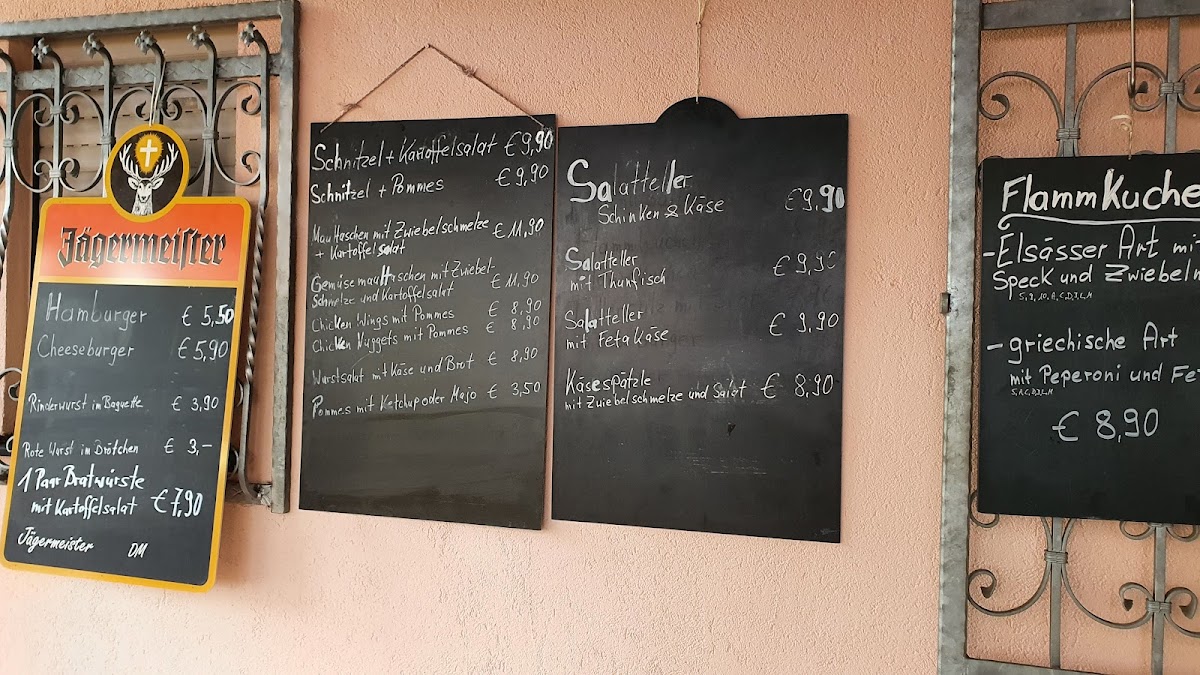 Jägermeister
Hamburger € 5,50
Cheeseburger € 5,90
Rinderwurst im Baguette € 3,90
Rote Wurst im Brötchen € 3,-
1 Paar Bratwürste
mit Kartoffelsalat € 7,90
Jägermeister DM
Schnitzel + Kartoffelsalat € 9,90
Schnitzel + Pommes € 9,90
Maultaschen mit Zwiebelschmelze € 11,90
+ Kartoffelsalat
Gemüsemaultaschen mit Zwiebel-
Schmelze und Kartoffelsalat € 11,90
Chicken Wings mit Pommes € 8,90
Chicken Nuggets mit Pommes € 8,90
Wurstsalat mit Käse und Brot € 8,90
Pommes mit Ketchup oder Majo € 3,50
Salatteller
Schinken & Käse € 9,90
Salatteller
mit Thunfisch € 9,90
Salatteller
mit Feta Käse € 9,90
Käsespätzle
mit Zwiebelschmelze und Salat € 8,90
FlammKuche
- Elsässer Art mit
Speck und Zwiebeln
- griechische Art
mit Peperoni und Fet
€ 8,90